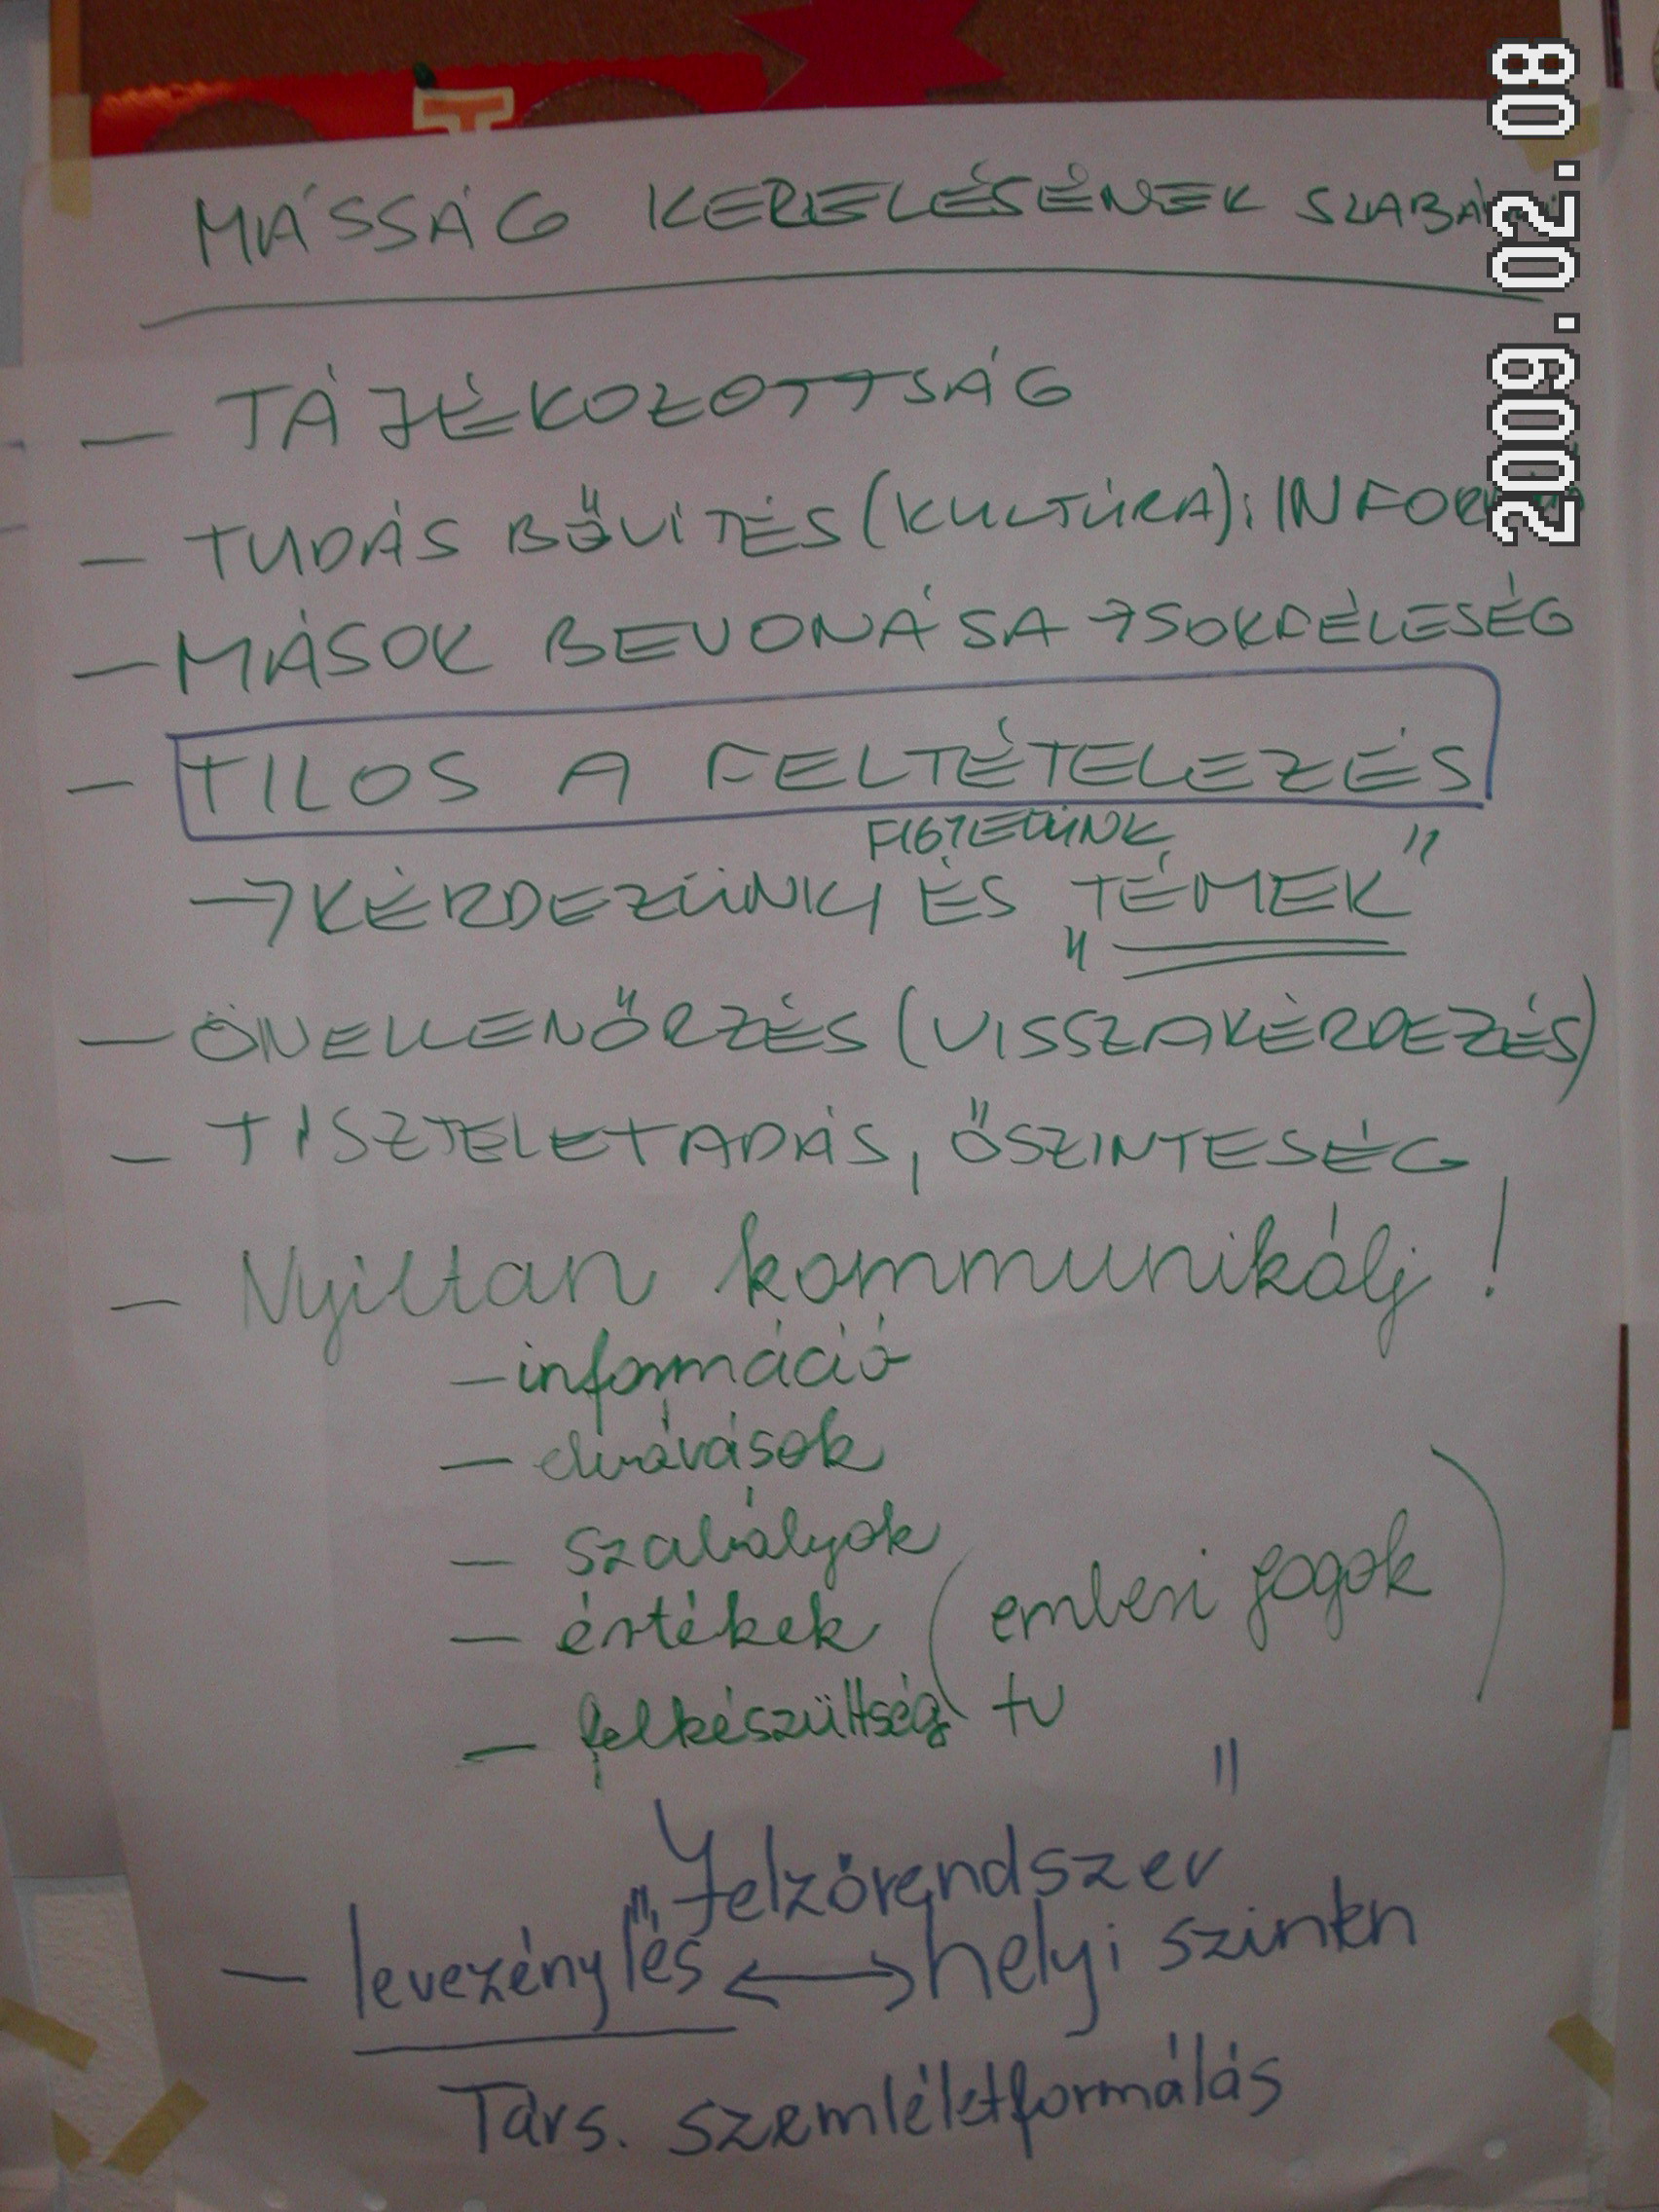 MÁSSÁG KERELÉSÉNEK
— TÁJÉKOZOTTSÁG
— TUDÁS BŐVÍTÉS (KULTÚRA);
— MÁSOK BEVONÁSA → SOKFÉLESÉG
— TILOS A FELTÉTELEZÉS
FIGYELÜNK
→ KÉRDEZÜNK, ÉS „TÉNYEK"
— ÖNELLENŐRZÉS (VISSZAKÉRDEZÉS)
— TISZTELETADÁS, ŐSZINTESÉG
— Nyíltan kommunikálj!
— információ
— elvárások
— szabályok
— értékek (emberi jogok)
— felkészültség tv
„Jelzőrendszer"
— levezénylés ↔ helyi szintn
Társ. szemléletformálás
2009.02.08